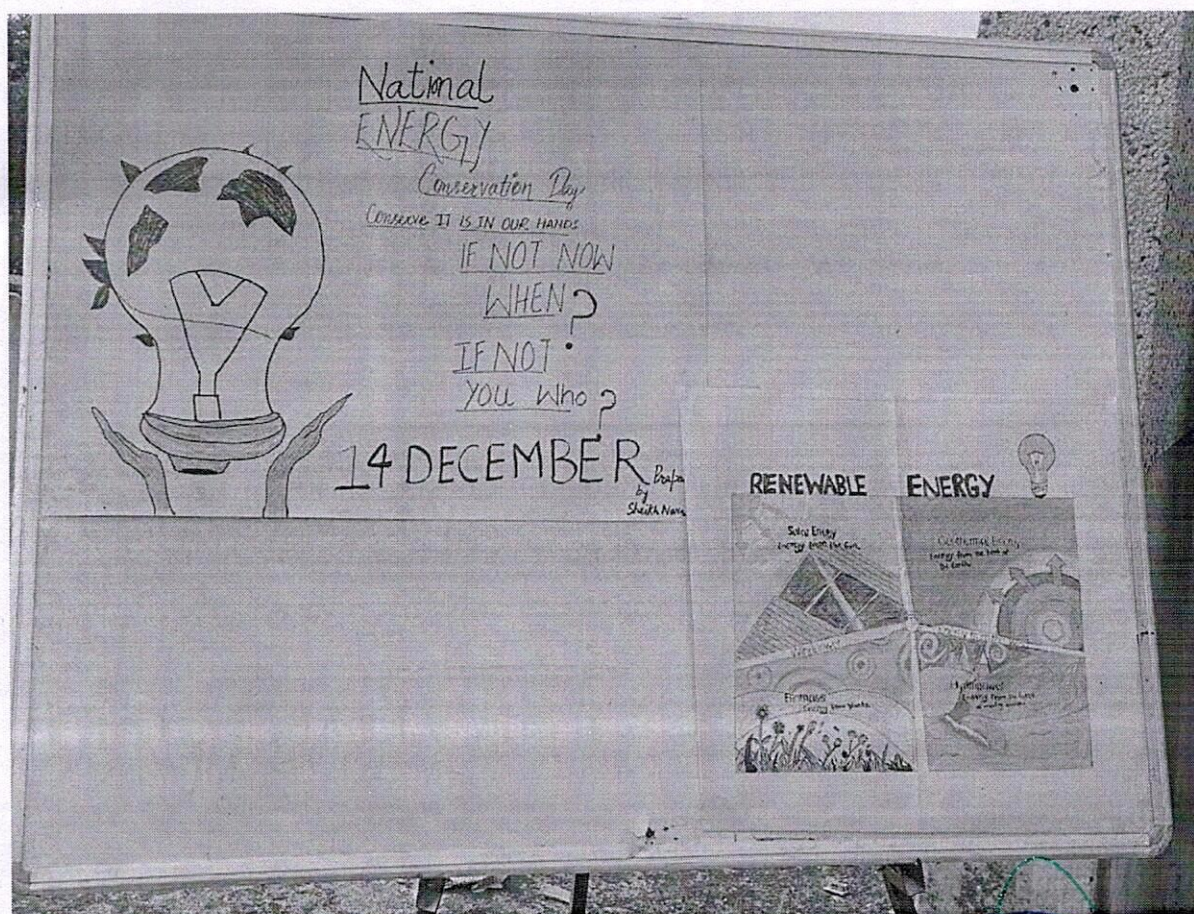 National
ENERGY
Conservation Day
Conserve IT IS IN OUR HANDS
IF NOT NOW
WHEN?
IF NOT
YOU Who?
14 DECEMBER
by
Sheikh
RENEWABLE ENERGY
Solar Energy
Energy from the Sun.
Geothermal Energy
Energy from the heat of
the Earth
Biomass
Energy from Plants
Hydropower
Energy from the